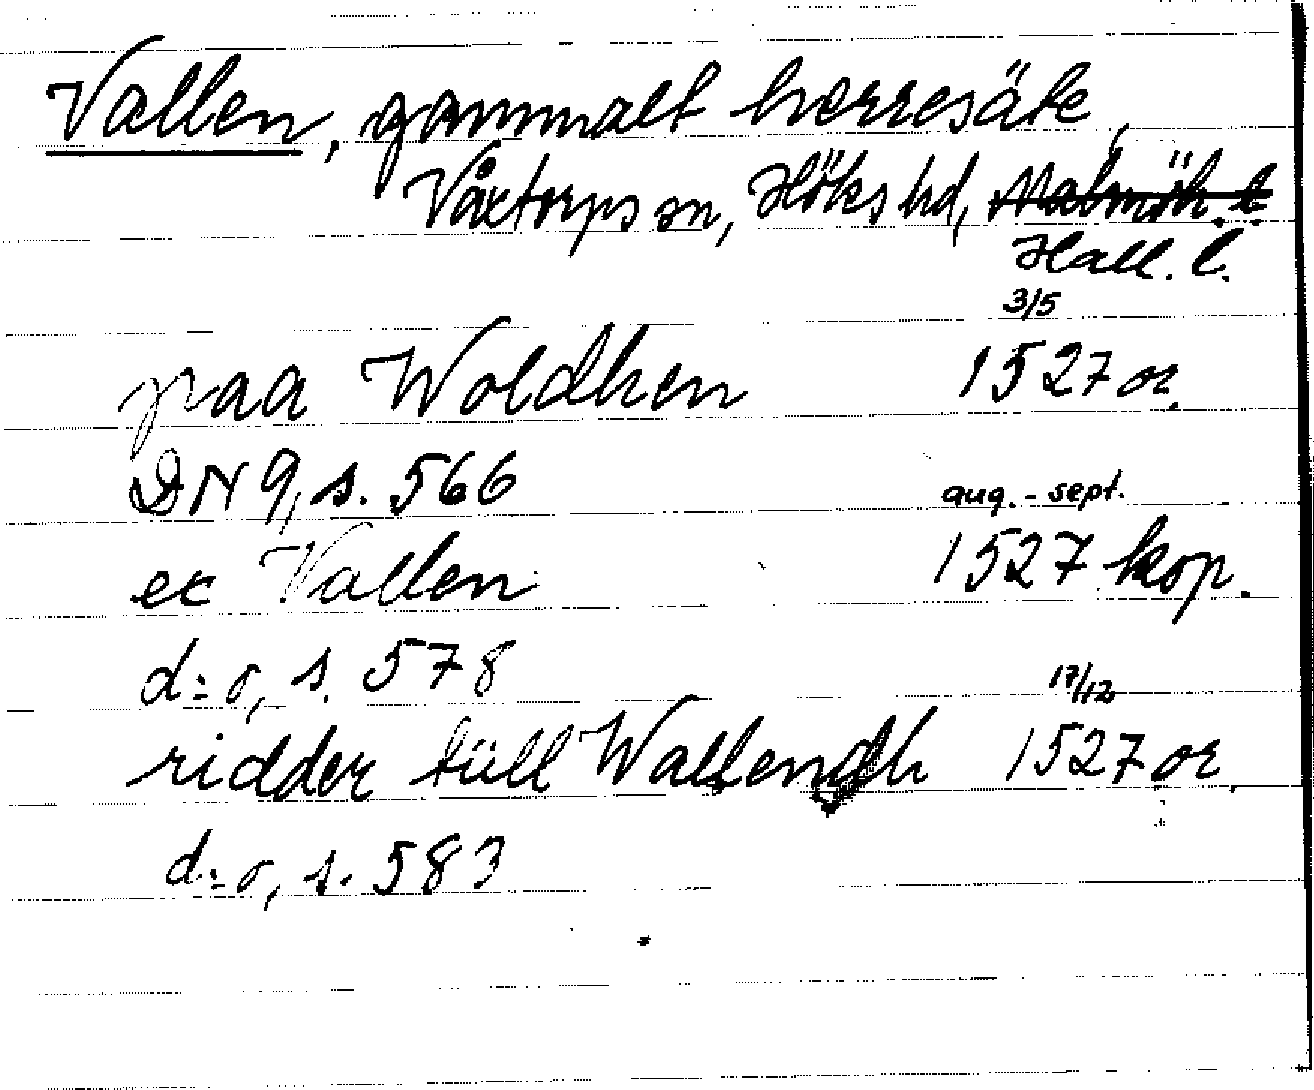 Vallen, gammalt herresäte,
Våxtorps sn, Höks hd, Malmöh. l.
Hall. l.
3/5
paa Woldhen 1527 or.
DN 9, s. 566
aug. - sept.
ex Vallen 1527 kop.
d:o, s. 578
17/12
ridder tüll Wallendh 1527 or.
d:o, s. 583